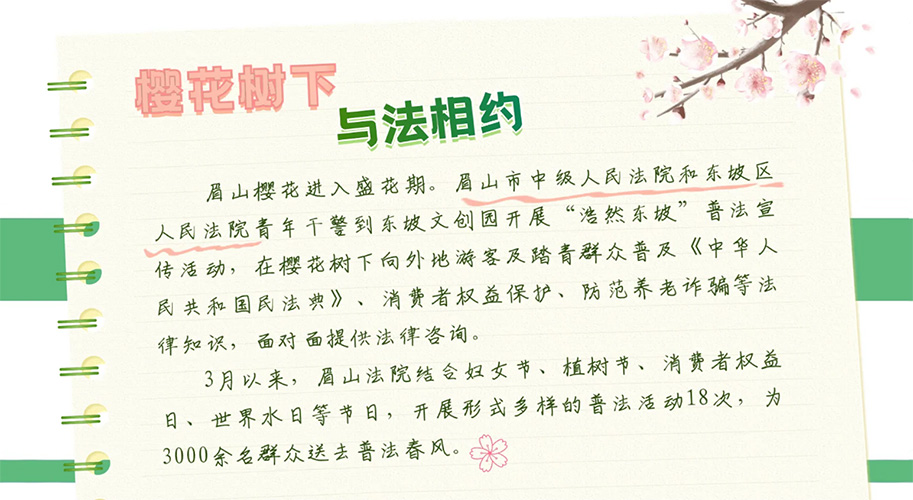 樱花树下
与法相约
眉山樱花进入盛花期。眉山市中级人民法院和东坡区
人民法院青年干警到东坡文创园开展“浩然东坡”普法宣
传活动，在樱花树下向外地游客及踏青群众普及《中华人
民共和国民法典》、消费者权益保护、防范养老诈骗等法
律知识，面对面提供法律咨询。
3月以来，眉山法院结合妇女节、植树节、消费者权益
日、世界水日等节日，开展形式多样的普法活动18次，为
3000余名群众送去普法春风。